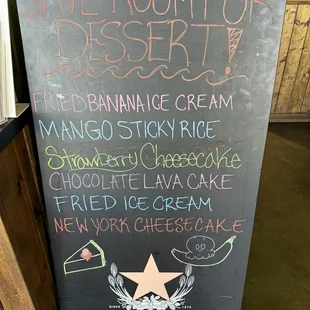 SAVE ROOM FOR
DESSERT!
FRIED BANANA ICE CREAM
MANGO STICKY RICE
Strawberry Cheesecake
CHOCOLATE LAVA CAKE
FRIED ICE CREAM
NEW YORK CHEESECAKE